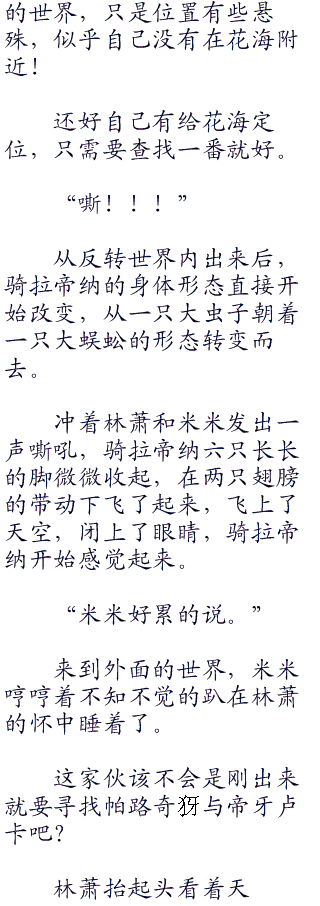 的世界，只是位置有些悬
殊，似乎自己没有在花海附
近！
还好自己有给花海定
位，只需要查找一番就好。
“嘶！！！”
从反转世界内出来后，
骑拉帝纳的身体形态直接开
始改变，从一只大虫子朝着
一只大蜈蚣的形态转变而
去。
冲着林萧和米米发出一
声嘶吼，骑拉帝纳六只长长
的脚微微收起，在两只翅膀
的带动下飞了起来，飞上了
天空，闭上了眼睛，骑拉帝
纳开始感觉起来。
“米米好累的说。”
来到外面的世界，米米
哼哼着不知不觉的趴在林萧
的怀中睡着了。
这家伙该不会是刚出来
就要寻找帕路奇犽与帝牙卢
卡吧？
林萧抬起头看着天